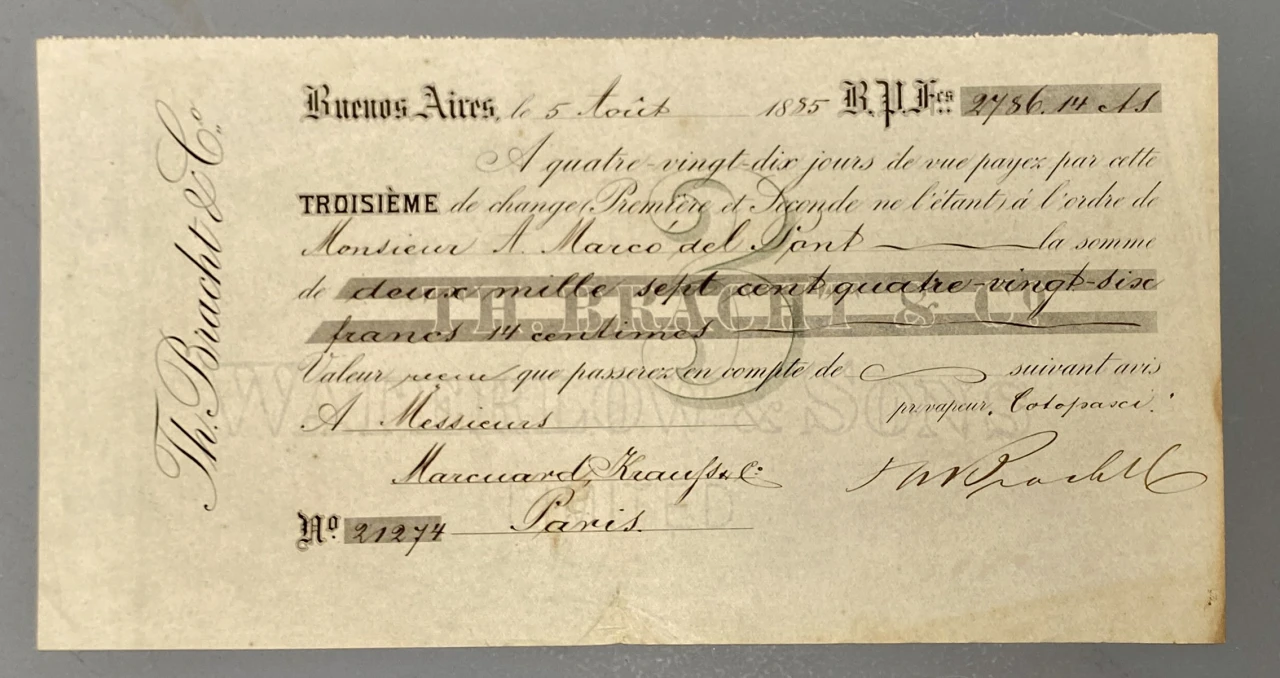 Th. Bracht & Cº
Buenos Aires, le 5 Août 1885 B.P. Fcs 2786.14 cts
A quatre-vingt-dix jours de vue payez par cette
TROISIÈME de change (Première et Seconde ne l'étant) à l'ordre de
Monsieur A. Marcó del Pont la somme
de deux mille sept cent quatre-vingt-six
francs 14 centimes
TH. BRACHT & Cº
3
Valeur reçue que passerez en compte de suivant avis
WATERLOW & SONS
pr. vapeur. Cotopaxi.
A Messieurs
Marcuard, Krauss & Cº
Th Bracht & C
LIMITED
Nº 21274 Paris.